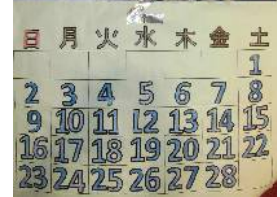 日 月 火 水 木 金 土
1
2 3 4 5 6 7 8
9 10 11 12 13 14 15
16 17 18 19 20 21 22
23 24 25 26 27 28